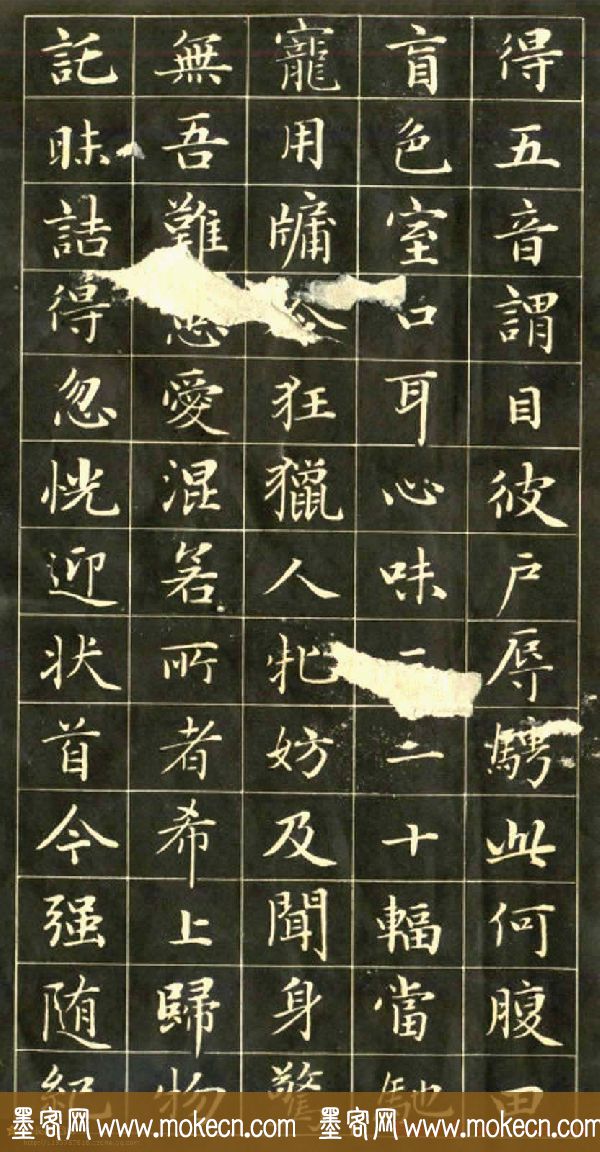 得五音謂目彼戶辱騁此何腹田
盲色室口耳心味二十輻當馳
寵用牖令狂獵人牝妨及聞身驚
無吾難惡愛混若所者希上歸物
託昧詰得忽恍迎状首今强随紀
墨客网 www.mokecn.com 墨客网 www.mokecn.com